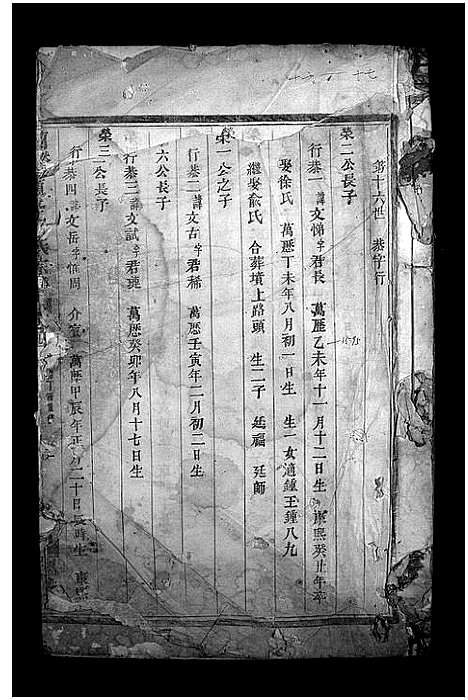 第十六世 恭字行
榮二公長子
行恭一 諱文悌 字君長 萬曆乙未年十一月十二日生 康熙癸丑年卒
1595
娶徐氏 萬曆丁未年八月初一日生 生一女適鍾王鍾八九
繼娶俞氏 合葬墳上路頭 生二子 廷福 廷師
榮一公之子
行恭二 諱文古 字君稀 萬曆壬寅年二月初二日生
六公長子
行恭三 諱文試 字君 萬曆癸卯年八月十七日生
榮三公長子
行恭四 諱文岳 字 周 介賓 萬曆甲辰年正月二十日 時生 康熙